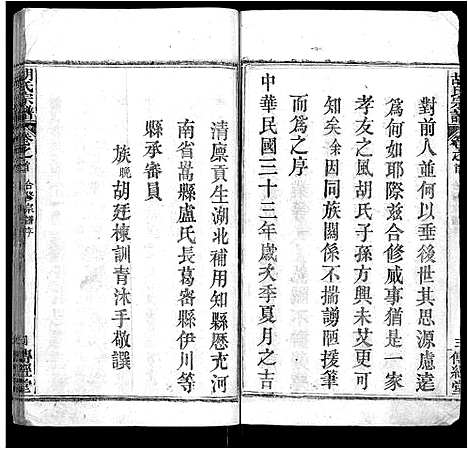 對前人並何以垂後世其思源慮遠
為何如耶際茲合修咸事猶是一家
孝友之風胡氏子孫方興未艾更可
知矣余因同族關係不揣謭陋援筆
而為之序
中華民國三十三年歲次季夏月之吉
清廩貢生湖北補用知縣歷充河
南省嵩縣盧氏長葛審縣伊川等
縣承審員
族晚胡廷棟訓青沐手敬譔
胡氏宗譜
卷之首
合修宗譜序
傳經堂